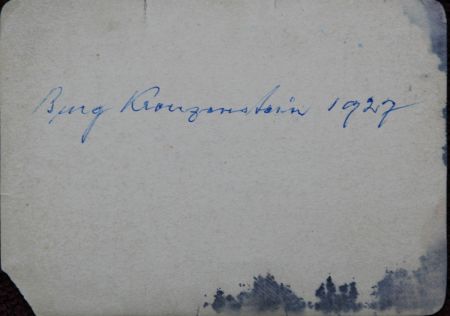 Burg Kreuzenstein 1927